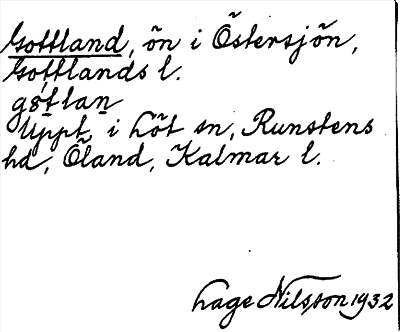 Gottland, ön i Östersjön,
Gottlands l.
go̤t̲lan̲
Uppt. i Löt sn, Runstens
hd, Öland, Kalmar l.
Lage Nilsson 1932